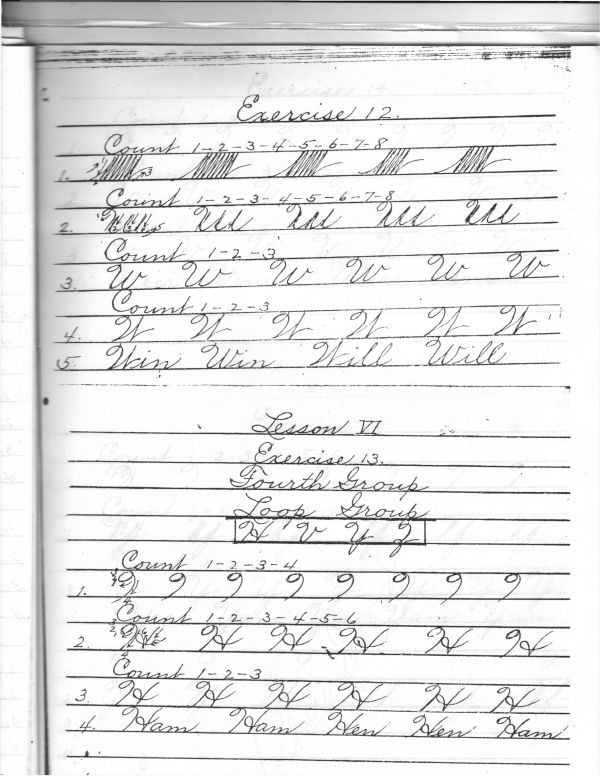 Exercise 12.
Count 1-2-3-4-5-6-7-8
1.
Count 1-2-3-4-5-6-7-8
2.
Count 1-2-3
3. W W W W W W
Count 1-2-3
4. W W W W W W
5. Win Win Will Will
Lesson VI
Exercise 13.
Fourth Group
Loop Group
H V Y Z
Count 1-2-3-4
1.
Count 1-2-3-4-5-6
2. H H H H H H
Count 1-2-3
3 H H H H H H
4. Ham Ham Hen Hen Ham